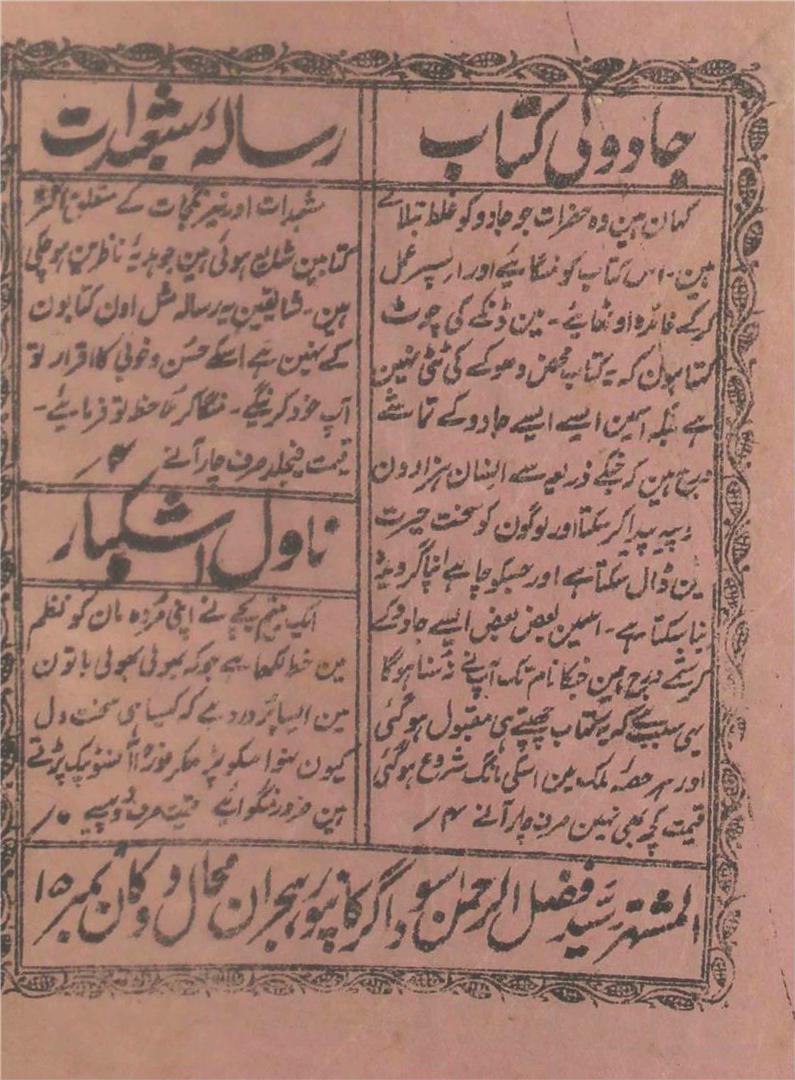 جادو کی کتاب
کہان ہین وہ حضرات جو جادو کو غلط بتلاتے
ہین۔ اس کتاب کو منگایئے اور اسپر عمل
کرکے فائدہ اوٹھایئے۔ مین ڈنکے کی چوٹ
کہتا ہون کہ یہ کتاب محض دھوکے کی ٹٹی نہین
ہے بلکہ اسمین ایسے ایسے جادو کے تماشے
درج ہین کہ جنکے ذریعہ سے انسان ہزارون
روپیہ پیدا کر سکتا اور لوگون کو سخت حیرت
مین ڈال سکتا ہے اور جسکو چاہے اپنا گرویدہ
بنا سکتا ہے۔ اسمین بعض بعض ایسے جادو کے
کرشمے درج ہین جنکا نام تک آپنے نہ سنا ہوگا
یہی سبب ہے کہ یہ کتاب چھپتے ہی مقبول ہوگئی
اور ہر حصۂ ملک مین اسکی مانگ شروع ہوگئی
قیمت کچھ بھی نہین صرف چار آنے ۴؍
رسالۂ شعبدات
شعبدات اور نیرنجات کے متعلق اکثر
کتابین شایع ہوئی ہین جو ہدیۂ ناظرین ہوچکی
ہین۔ شایقین یہ رسالہ مثل اون کتابون
کے نہین ہے اسکے حسن و خوبی کا اقرار تو
آپ خود کرینگے۔ منگا کر ملاحظہ تو فرمایئے۔
قیمت فیجلد صرف چار آنے ۴؍
ناول اشکبار
ایک یتیم بچے نے اپنی مردہ مان کو نظم
مین خط لکھا ہے جو کہ بھولی بھولی باتون
مین ایسا پر درد ہے کہ کیسا ہی سخت دل
کیون نہوا سکو پڑھکر فورًا آنسو ٹپک پڑتے
ہین ضرور منگوایئے قیمت صرف دو پیسے ۰؍
المشتہر سید فضل الرحمن سوداگر کانپور ہجران محال دوکان نمبر ۱۵